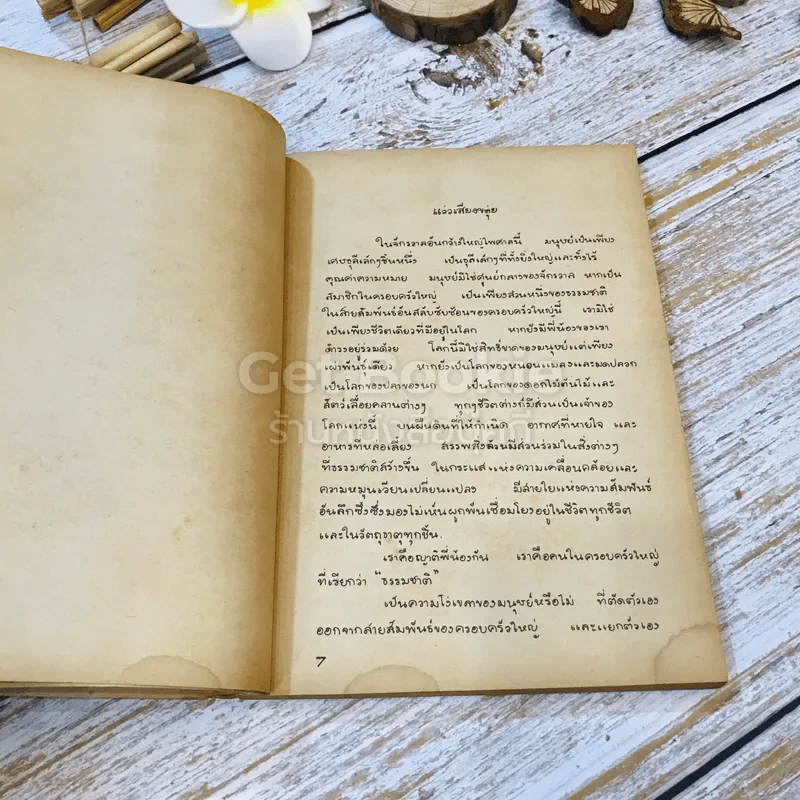 แว่วเสียงขลุ่ย
ในจักรวาลอันกว้างใหญ่ไพศาลนี้ มนุษย์เป็นเพียง
เศษธุลีเล็กๆชิ้นหนึ่ง เป็นธุลีเล็กๆที่ทั้งยิ่งใหญ่และทั้งไร้
คุณค่าความหมาย มนุษย์มิใช่ศูนย์กลางของจักรวาล หากเป็น
สมาชิกในครอบครัวใหญ่ เป็นเพียงส่วนหนึ่งของธรรมชาติ
ในสายสัมพันธ์อันสลับซับซ้อนของครอบครัวใหญ่นี้ เรามิใช่
เป็นเพียงชีวิตเดียวที่มีอยู่ในโลก หากยังมีพี่น้องของเรา
ดำรงอยู่ร่วมด้วย โลกนี้มิใช่สิทธิ์ขาดของมนุษย์แต่เพียง
เผ่าพันธุ์เดียว หากยังเป็นโลกของหนอนแมลงและมดปลวก
เป็นโลกของปลาของนก เป็นโลกของดอกไม้ต้นไม้และ
สัตว์เลื้อยคลานต่างๆ ทุกๆชีวิตต่างก็มีส่วนเป็นเจ้าของ
โลกแห่งนี้ บนผืนดินที่ให้กำเนิด อากาศที่หายใจ และ
อาหารที่หล่อเลี้ยง สรรพสิ่งล้วนมีส่วนร่วมในสิ่งต่างๆ
ที่ธรรมชาติสร้างขึ้น ในกระแสแห่งความเคลื่อนคล้อยและ
ความหมุนเวียนเปลี่ยนแปลง มีสายใยแห่งความสัมพันธ์
อันลึกซึ้งซึ่งมองไม่เห็นผูกพันเชื่อมโยงอยู่ในชีวิตทุกชีวิต
และในวัตถุธาตุทุกชิ้น.
เราคือญาติพี่น้องกัน เราคือคนในครอบครัวใหญ่
ที่เรียกว่า "ธรรมชาติ"
เป็นความโง่เขลาของมนุษย์หรือไม่ ที่ตัดตัวเอง
ออกจากสายสัมพันธ์ของครอบครัวใหญ่ และแยกตัวเอง
7
Get Bookie